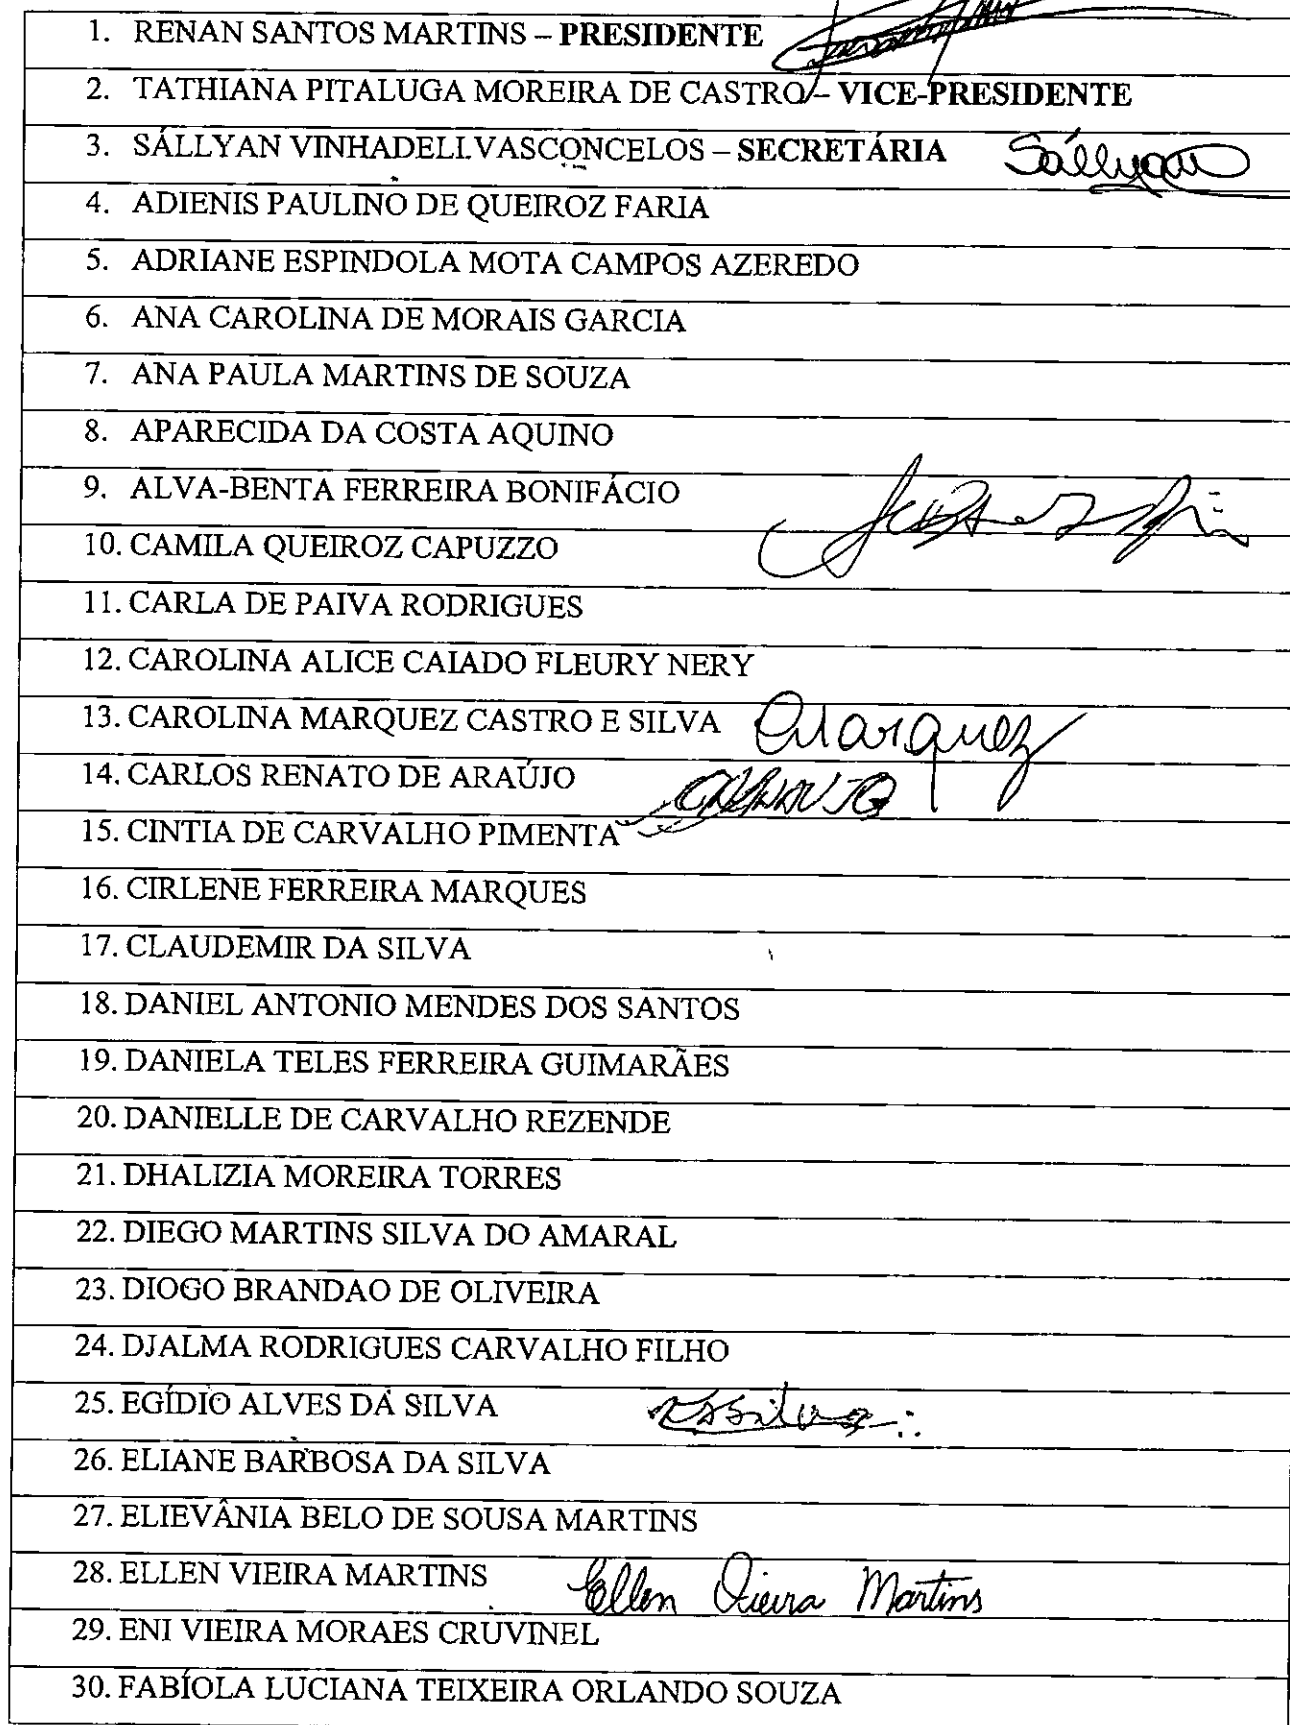 1. RENAN SANTOS MARTINS – PRESIDENTE
2. TATHIANA PITALUGA MOREIRA DE CASTRO – VICE-PRESIDENTE
3. SÁLLYAN VINHADELI VASCONCELOS – SECRETÁRIA Sállyan
4. ADIENIS PAULINO DE QUEIROZ FARIA
5. ADRIANE ESPINDOLA MOTA CAMPOS AZEREDO
6. ANA CAROLINA DE MORAIS GARCIA
7. ANA PAULA MARTINS DE SOUZA
8. APARECIDA DA COSTA AQUINO
9. ALVA-BENTA FERREIRA BONIFÁCIO
10. CAMILA QUEIROZ CAPUZZO
11. CARLA DE PAIVA RODRIGUES
12. CAROLINA ALICE CAIADO FLEURY NERY
13. CAROLINA MARQUEZ CASTRO E SILVA CMarquez
14. CARLOS RENATO DE ARAÚJO
15. CINTIA DE CARVALHO PIMENTA
16. CIRLENE FERREIRA MARQUES
17. CLAUDEMIR DA SILVA
18. DANIEL ANTONIO MENDES DOS SANTOS
19. DANIELA TELES FERREIRA GUIMARÃES
20. DANIELLE DE CARVALHO REZENDE
21. DHALIZIA MOREIRA TORRES
22. DIEGO MARTINS SILVA DO AMARAL
23. DIOGO BRANDAO DE OLIVEIRA
24. DJALMA RODRIGUES CARVALHO FILHO
25. EGÍDIO ALVES DA SILVA
26. ELIANE BARBOSA DA SILVA
27. ELIEVÂNIA BELO DE SOUSA MARTINS
28. ELLEN VIEIRA MARTINS Ellen Vieira Martins
29. ENI VIEIRA MORAES CRUVINEL
30. FABÍOLA LUCIANA TEIXEIRA ORLANDO SOUZA